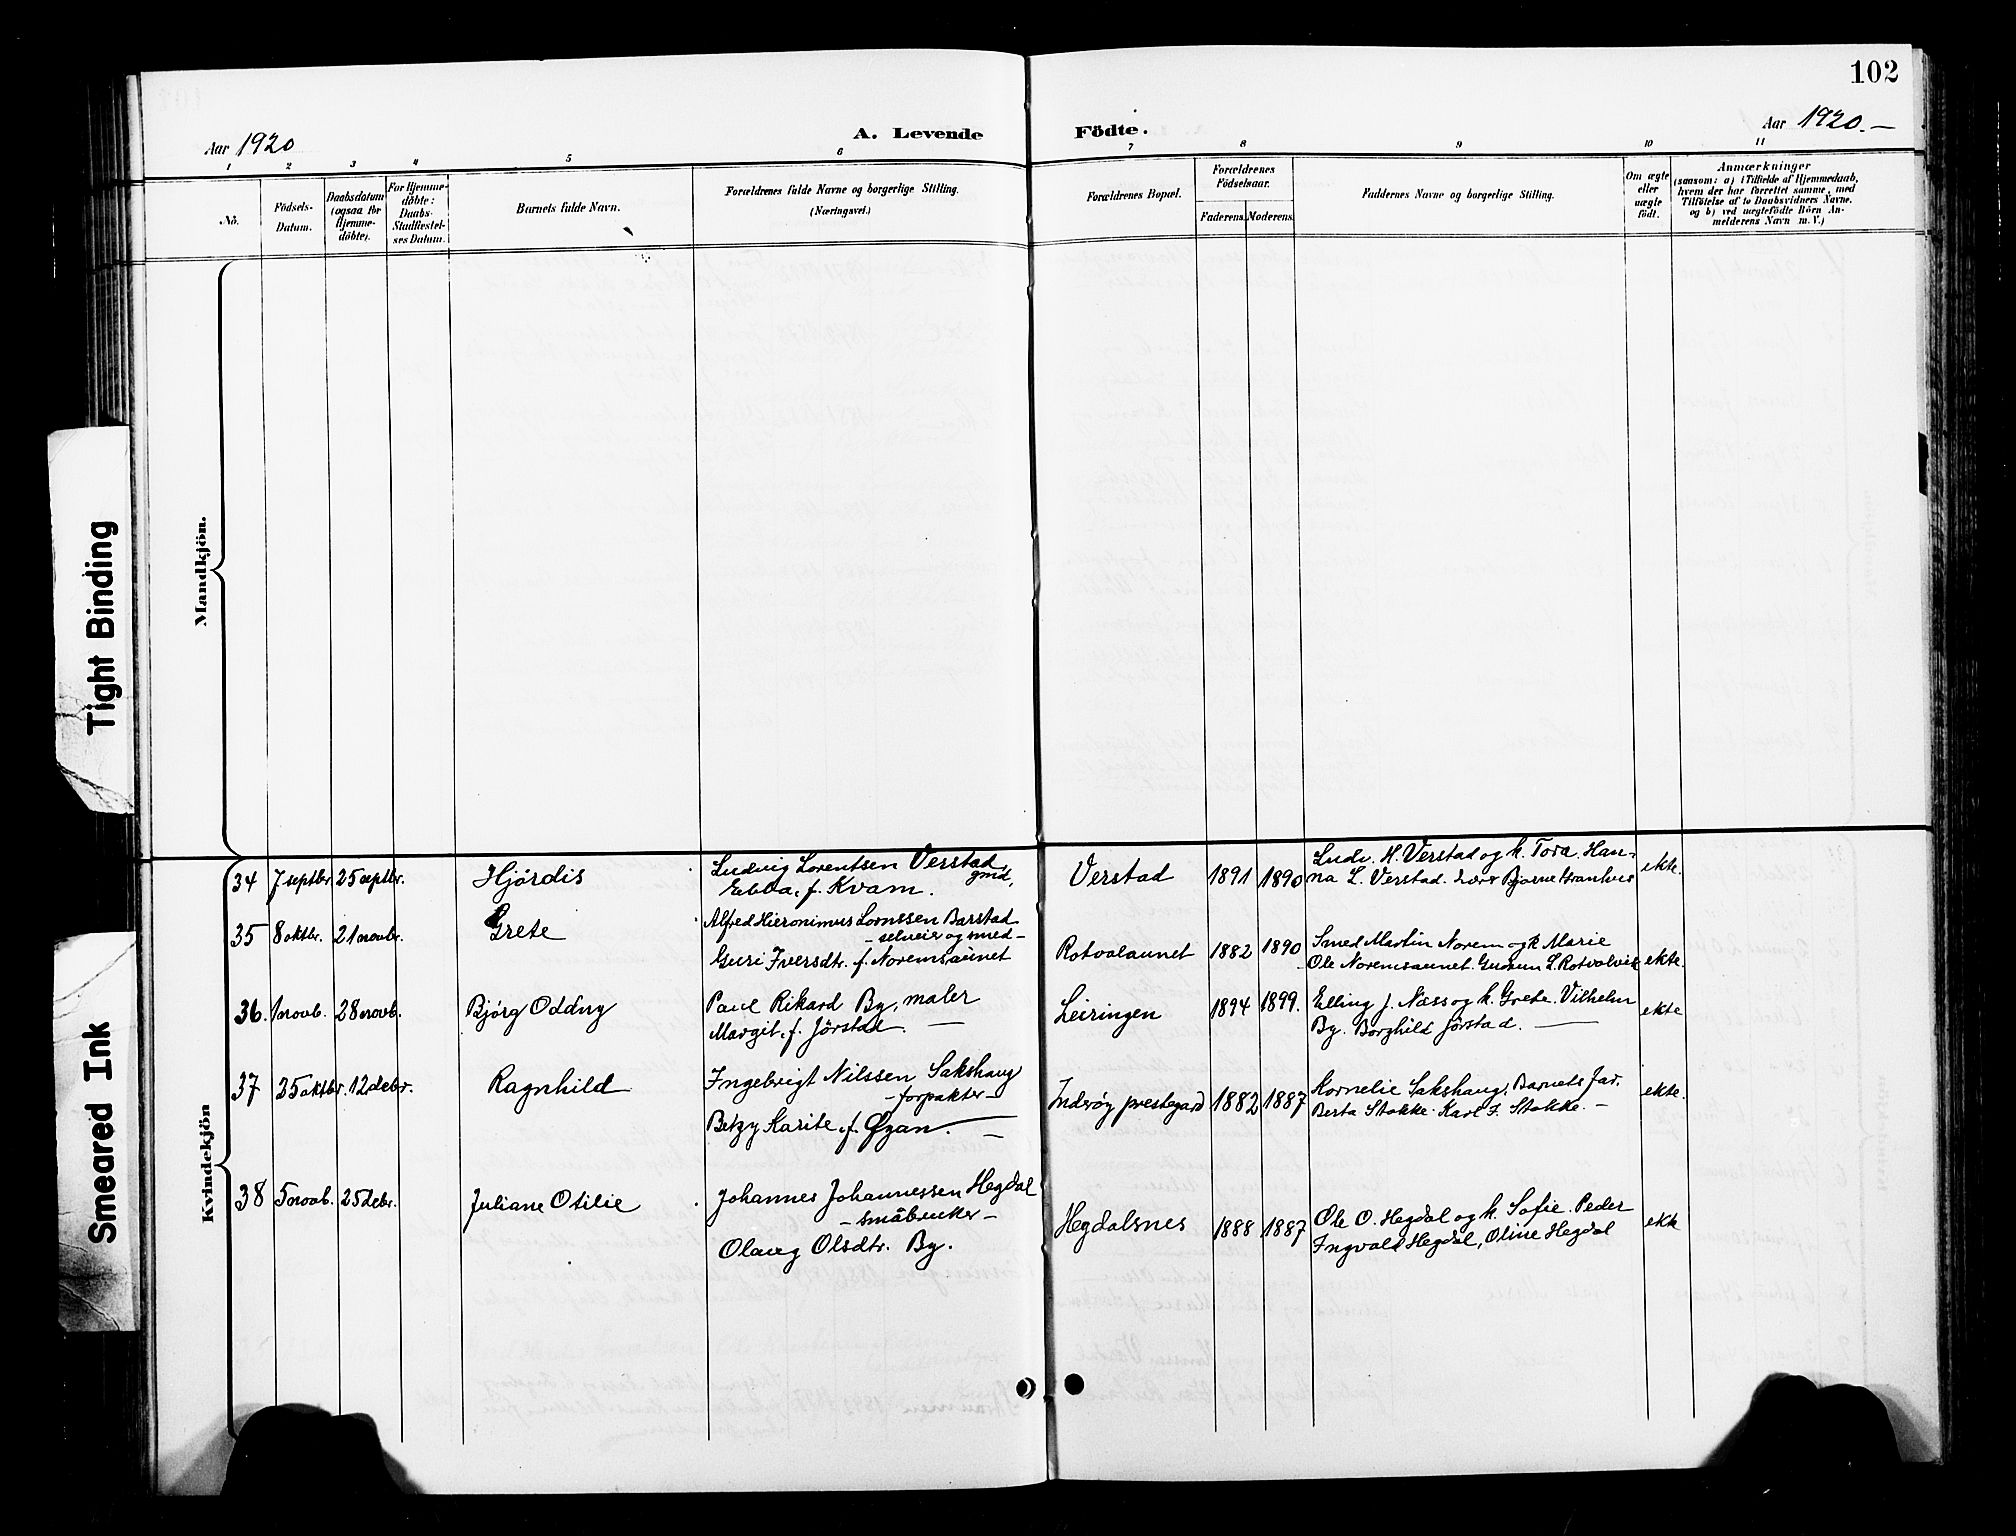 102
Aar 1920
A. Levende Födte.
Aar 1920.—
1 2 3 4 5 6 7 8 9 10 11
No.
Födsels-Datum.
Daabsdatum (ogsaa for Hjemme-döbte).
For Hjemme-döbte: Daabs-Stadfæstel-ses Datum.
Barnets fulde Navn.
Forældrenes fulde Navne og borgerlige Stilling.
(Næringsvei.)
Forældrenes Bopæl.
Forældrenes Födselsaar.
Faderens. Moderens.
Faddernes Navne og borgerlige Stilling.
Om ægte eller uægte födt.
Anmærkninger
(saasom: a) i Tilfælde af Hjemmedaab,
hvem der har forrettet samme, med
Tilföielse af to Daabsvidners Navne.
og b) ved uægtefödte Börn An-
melderens Navn m. V.)
Mandkjön.
Kvindekjön
34 7 septbr. 25 septbr. Hjördis
Ludvig Lorentsen Verstad
gmd,
Ebba, f. Kvam.
Verstad 1891 1890
Ludv. H. Verstad og k. Tora. Han-
na L. Verstad. Bjarne
ekte.
35 8 oktbr. 21 novbr. Grete
Alfred Hieronimus Barstad
- selveier og smed -
Guri Iversdtr. f. Noremsaunet
Rotvolaunet 1882 1890
Smed Martin Norem og k Marie
Ole Noremsaunet. Gudrun L. Rotvolvik
ekte.
36. 1 novb. 28 novb. Bjørg Oddny
Paul Rikard By, maler
Margit, f. Jørstad. —
Leiringen 1894 1899.
Elling J. Næss og k. Grete. Vilhelm
By. Borghild Jørstad. —
ekte
37 25 oktbr. 12 debr. Ragnhild
Ingebrigt Nilssen Sakshaug
- forpakter -
Betzy Karite, f. Øzan. —
Inderøy prestegard 1882 1887
Kornelie Sakshaug, Barnets far.
Berta Stokke. Karl I. Stokke. —
ekte.
38 5 novb. 25 debr. Juliane Otilie
Johannes Johannessen Hegdal
- småbruker -
Olaug Olsdtr. By.
Hegdalsnes 1888 1887
Ole O. Hegdal og k. Sofie. Peder
Ingvald Hegdal, Oline Hegdal
ekte
Tight Binding
Smeared Ink